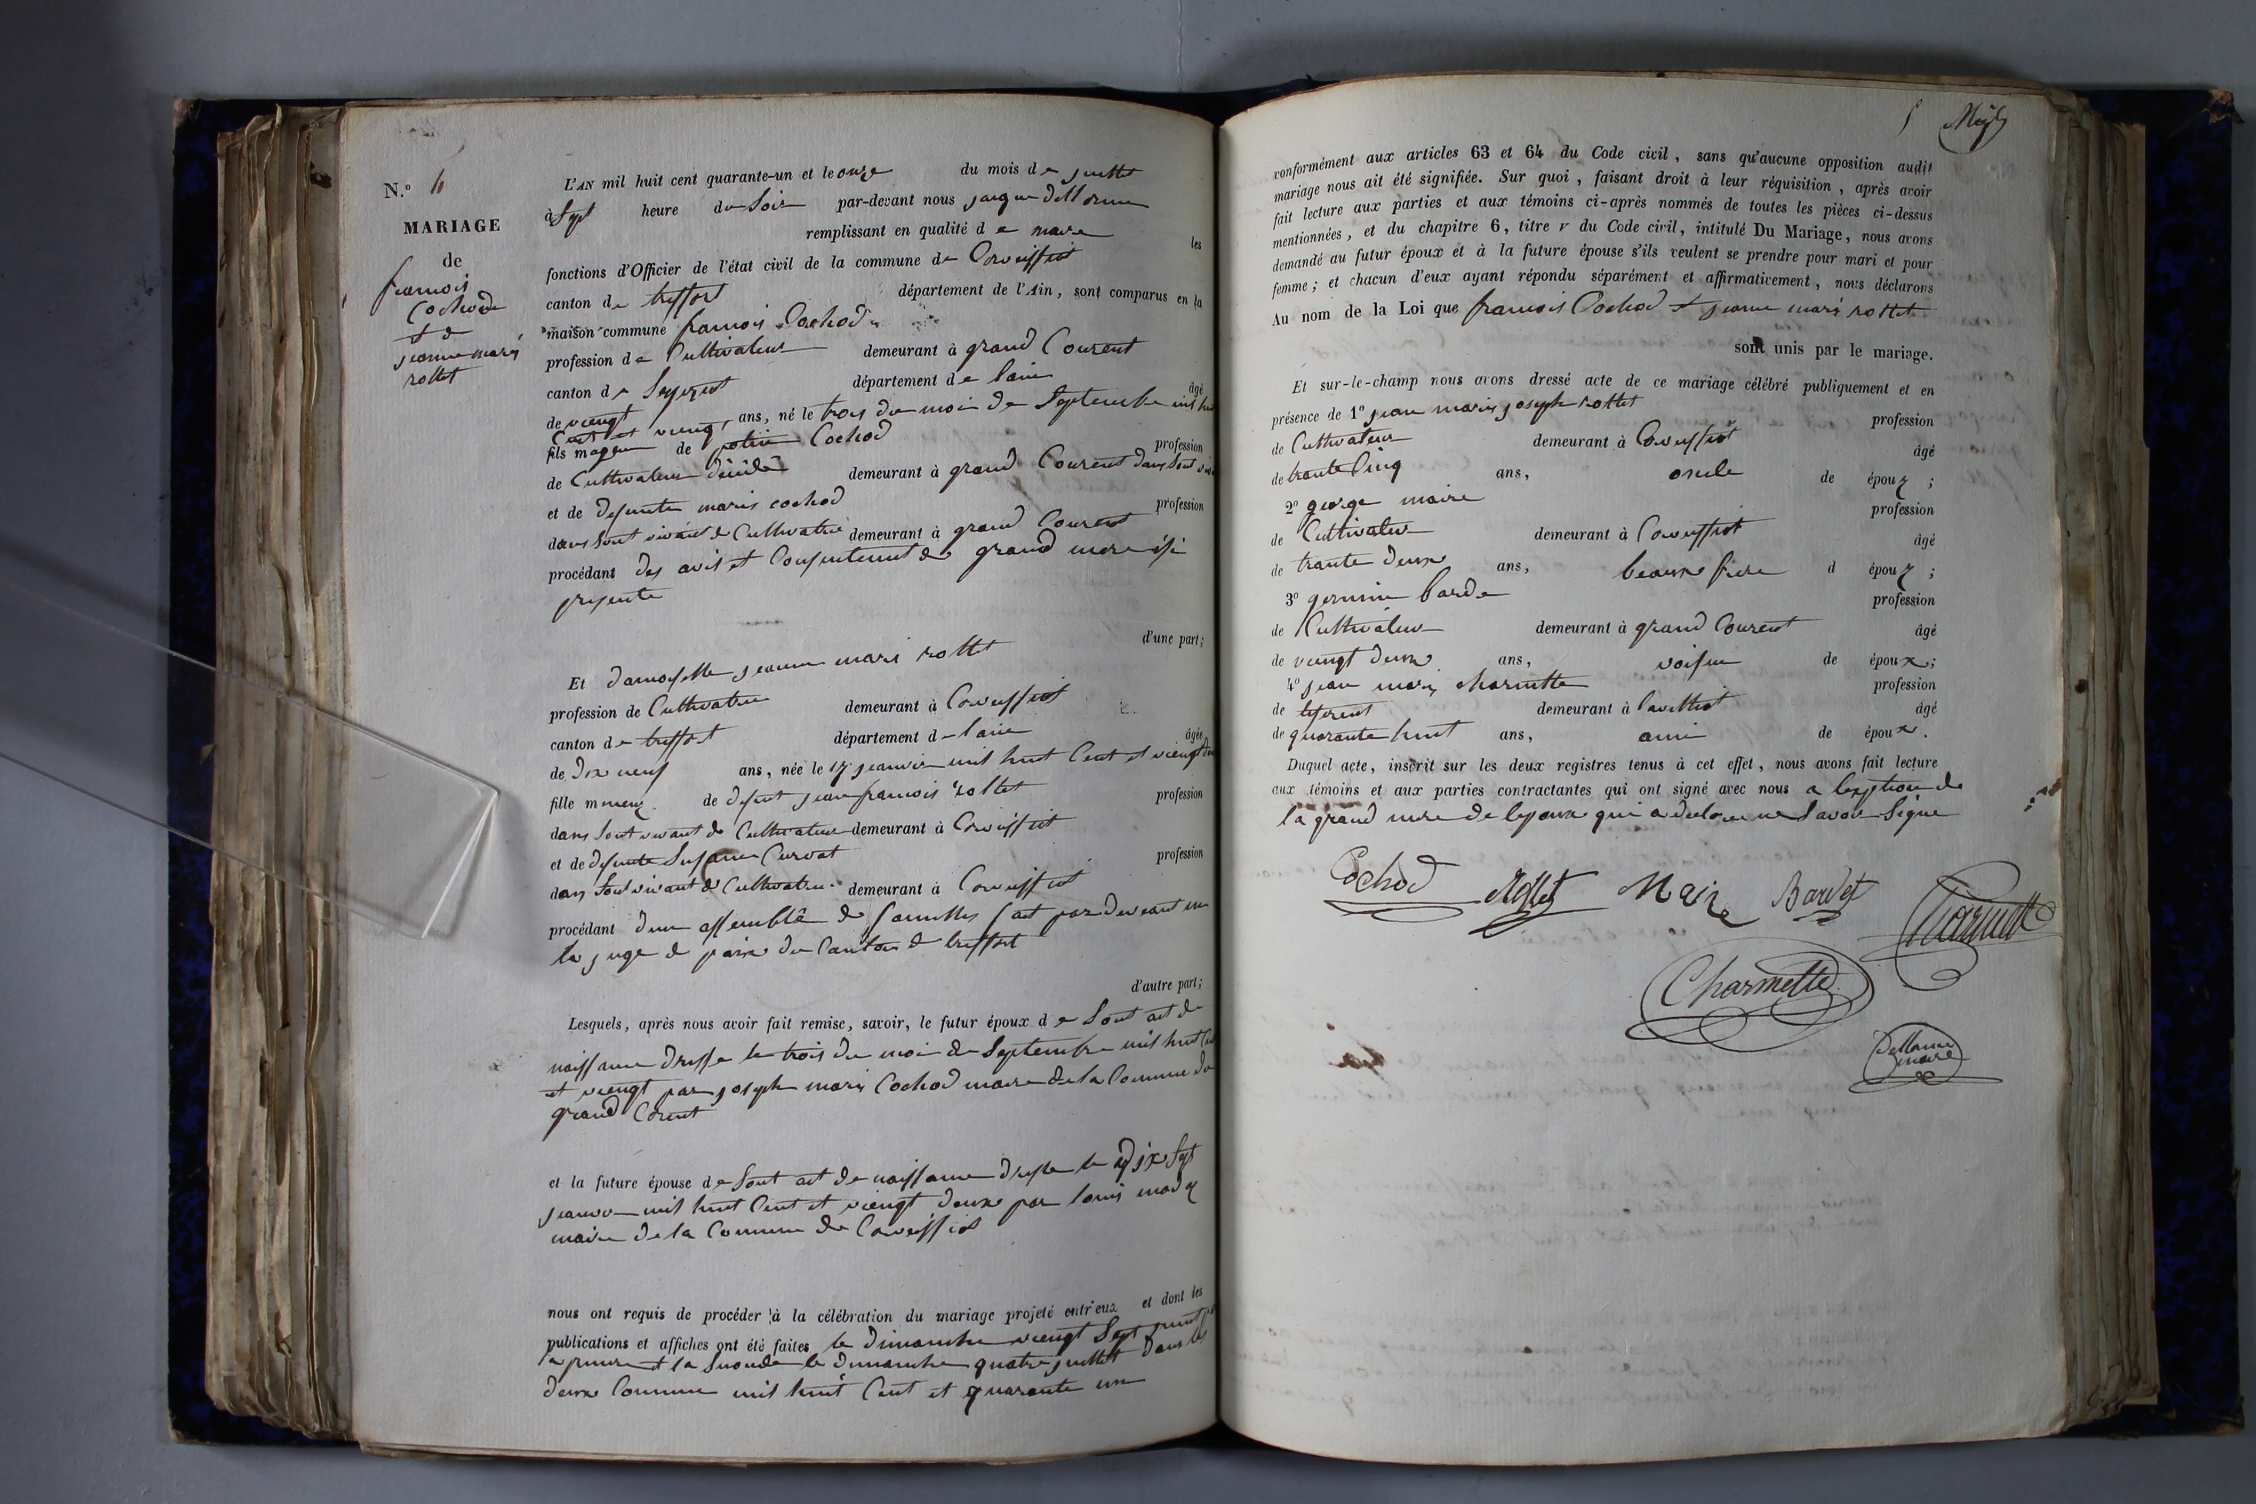 N.º 4
MARIAGE
de
francois
Cochod
et de
jeanne marÿ
rollet
L'AN mil huit cent quarante-un et le onze du mois de juillet
à Sept heure du Soir par-devant nous jacque
remplissant en qualité de maire les
fonctions d'Officier de l'état civil de la commune de Corveissiat
canton de treffort département de l'Ain, sont comparus en la
maison commune francois Cochod
profession de Cultivateur demeurant à grand Courent
canton de département de lain âgé
de viengt ans, né le trois du moi de Septembre mil huit
Cent et viengt
fils majeur de Cochod profession
de Cultivateur décédé demeurant à grand Courent dans Sont vivant
et de defunte marie cochod profession
dans Sont vivant de Cultivatrice demeurant à grand Courent
procédant des avis et Consentement de grand mere isi
presente
d'une part;
Et damoiselle jeanne mari rollet
profession de Cultivatrice demeurant à Corveissiat
canton de treffort département de lain âgée
de dix neuf ans, née le 17 jeanvier mil huit Cent et viengt deux
fille mineur de defunt jean francois rollet profession
dans Sont vivant de Cultivateur demeurant à Corveissiat
et de defunte Susanne Curvat profession
dans Sont vivant de Cultivatrice demeurant à Corveissiat
procédant dune assemblé de familles fait par devant
la juge de paix du Canton de treffort
d'autre part;
Lesquels, après nous avoir fait remise, savoir, le futur époux de Sont act de
naissance dresse le trois du moi de Septembre mil huit Cent
et viengt par joseph marÿ Cochod maire de la Commune du
grand Corent
et la future épouse de Sont act de naissance dresse le dix Sept
jeanvier mil huit Cent et viengt deux par louis
maire de la Commune de Corveissiat
nous ont requis de procéder à la célébration du mariage projeté entr'eux et dont les
publications et affiches ont été faites le dimanche viengt Sept juint
la premiere et la Seconde le dimanche quatre juillet dans les
deux Commune mil huit Cent et quarante un
5
conformément aux articles 63 et 64 du Code civil, sans qu'aucune opposition audit
mariage nous ait été signifiée. Sur quoi, faisant droit à leur réquisition, après avoir
fait lecture aux parties et aux témoins ci-après nommés de toutes les pièces ci-dessus
mentionnées, et du chapitre 6, titre v du Code civil, intitulé Du Mariage, nous avons
demandé au futur époux et à la future épouse s'ils veulent se prendre pour mari et pour
femme; et chacun d'eux ayant répondu séparément et affirmativement, nous déclarons
Au nom de la Loi que francois Cochod et jeanne mari rollet
sont unis par le mariage.
Et sur-le-champ nous avons dressé acte de ce mariage célébré publiquement et en
présence de 1º jean marie joseph rollet profession
de Cultivateur demeurant à Corveissiat âgé
de trante Cinq ans, oncle de épouz;
2º george maire profession
de Cultivateur demeurant à Corveissiat âgé
de trante deux ans, beaux frere d épouz;
3º germin barde profession
de Kultivateur demeurant à grand Courent âgé
de viengt deux ans, voisin de époux;
4º jean marÿ charmette profession
de demeurant à âgé
de quarante huit ans, ami de époux.
Duquel acte, inscrit sur les deux registres tenus à cet effet, nous avons fait lecture
aux témoins et aux parties contractantes qui ont signé avec nous a lexeption de
la grand mere de lepoux qui a declare ne Savoir Signe
Cochod Rollet Maire Bardet Charmette
Charmette
maire